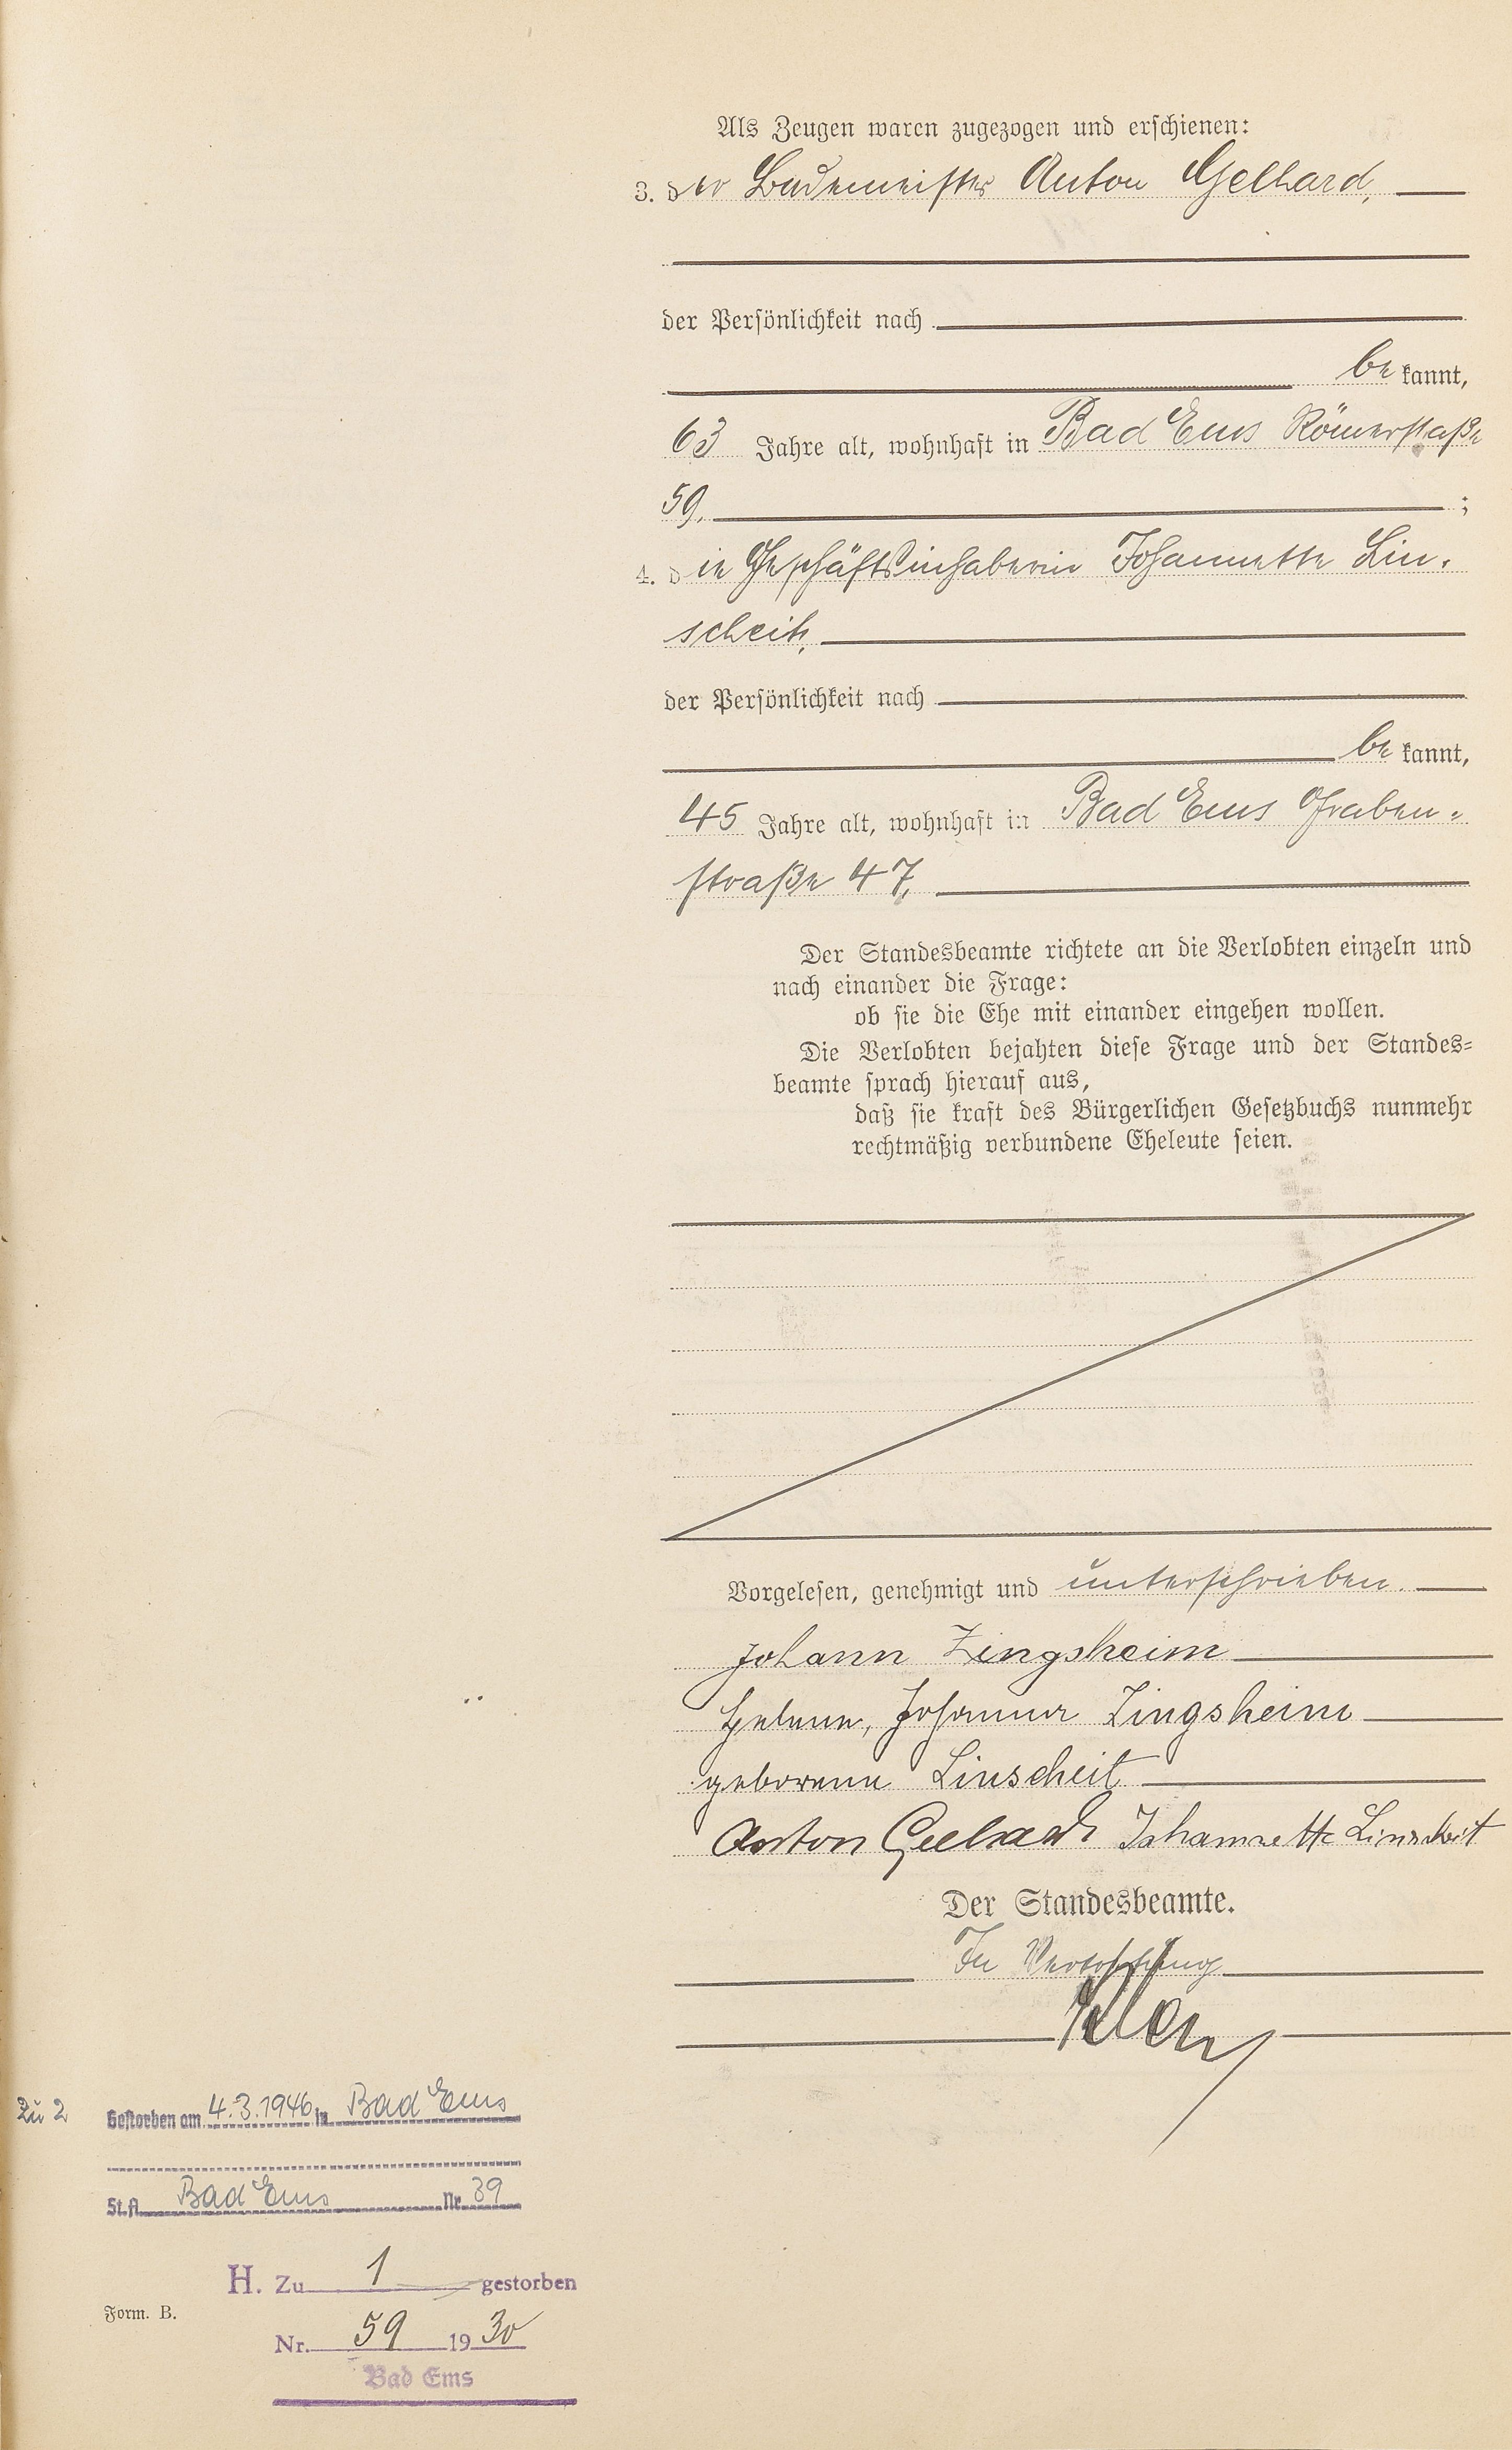 Als Zeugen waren zugezogen und erschienen:
3. der Bademeister Anton Gelhard,
der Persönlichkeit nach
be kannt,
63 Jahre alt, wohnhaft in Bad Ems Römerstraße
59. ;
4. die Geschäftsinhaberin Johannette Lin-
scheit,
der Persönlichkeit nach
be kannt,
45 Jahre alt, wohnhaft in Bad Ems Graben-
straße 47.
Der Standesbeamte richtete an die Verlobten einzeln und
nach einander die Frage:
ob sie die Ehe mit einander eingehen wollen.
Die Verlobten bejahten diese Frage und der Standes-
beamte sprach hierauf aus,
daß sie kraft des Bürgerlichen Gesetzbuchs nunmehr
rechtmäßig verbundene Eheleute seien.
Vorgelesen, genehmigt und unterschrieben.
Johann Zingsheim
Helene, Johanna Zingsheim
geborene Linscheit
Anton Gelhard Johannette Linscheit
Der Standesbeamte.
In Vertretung
Zu 2 Gestorben am 4.3.1946 in Bad Ems
St.A. Bad Ems Nr. 39
H. Zu 1 gestorben
Form. B.
Nr. 59 1930
Bad Ems